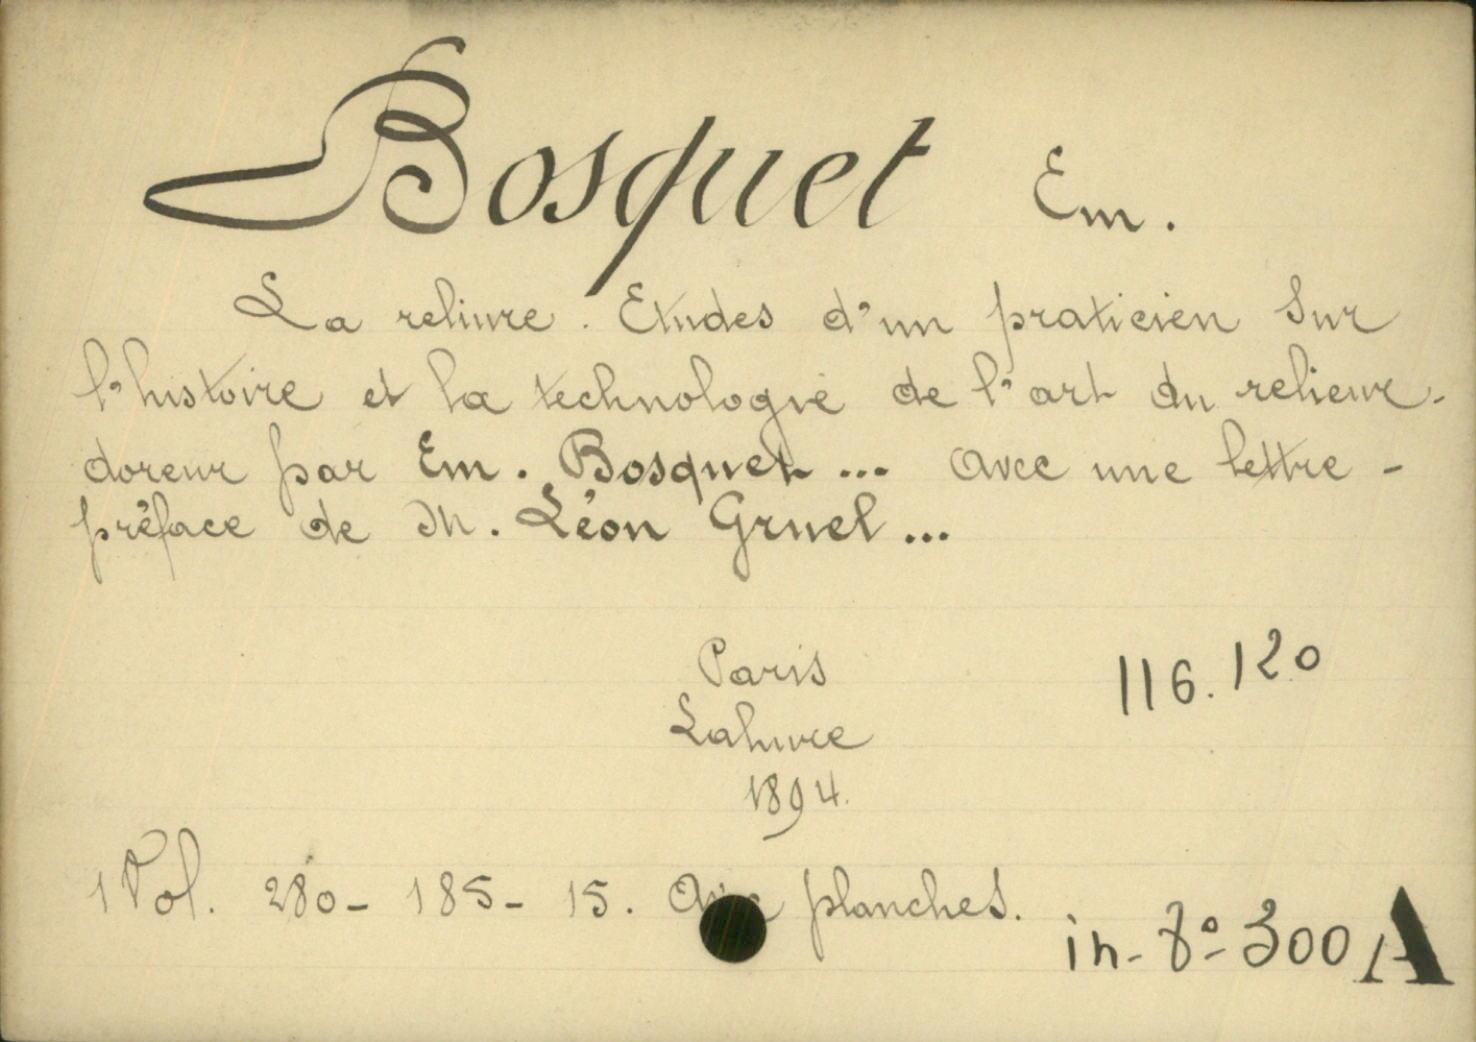 Bosquet Em.
La reliure. Etudes d'un praticien sur
l'histoire et la technologie de l'art du relieur-
doreur par Em. Bosquet ... avec une lettre-
préface de M. Léon Gruel ...
Paris
116.120
Lahure
1894.
1 Vol. 280- 185- 15. planches.
in-8°-300 A